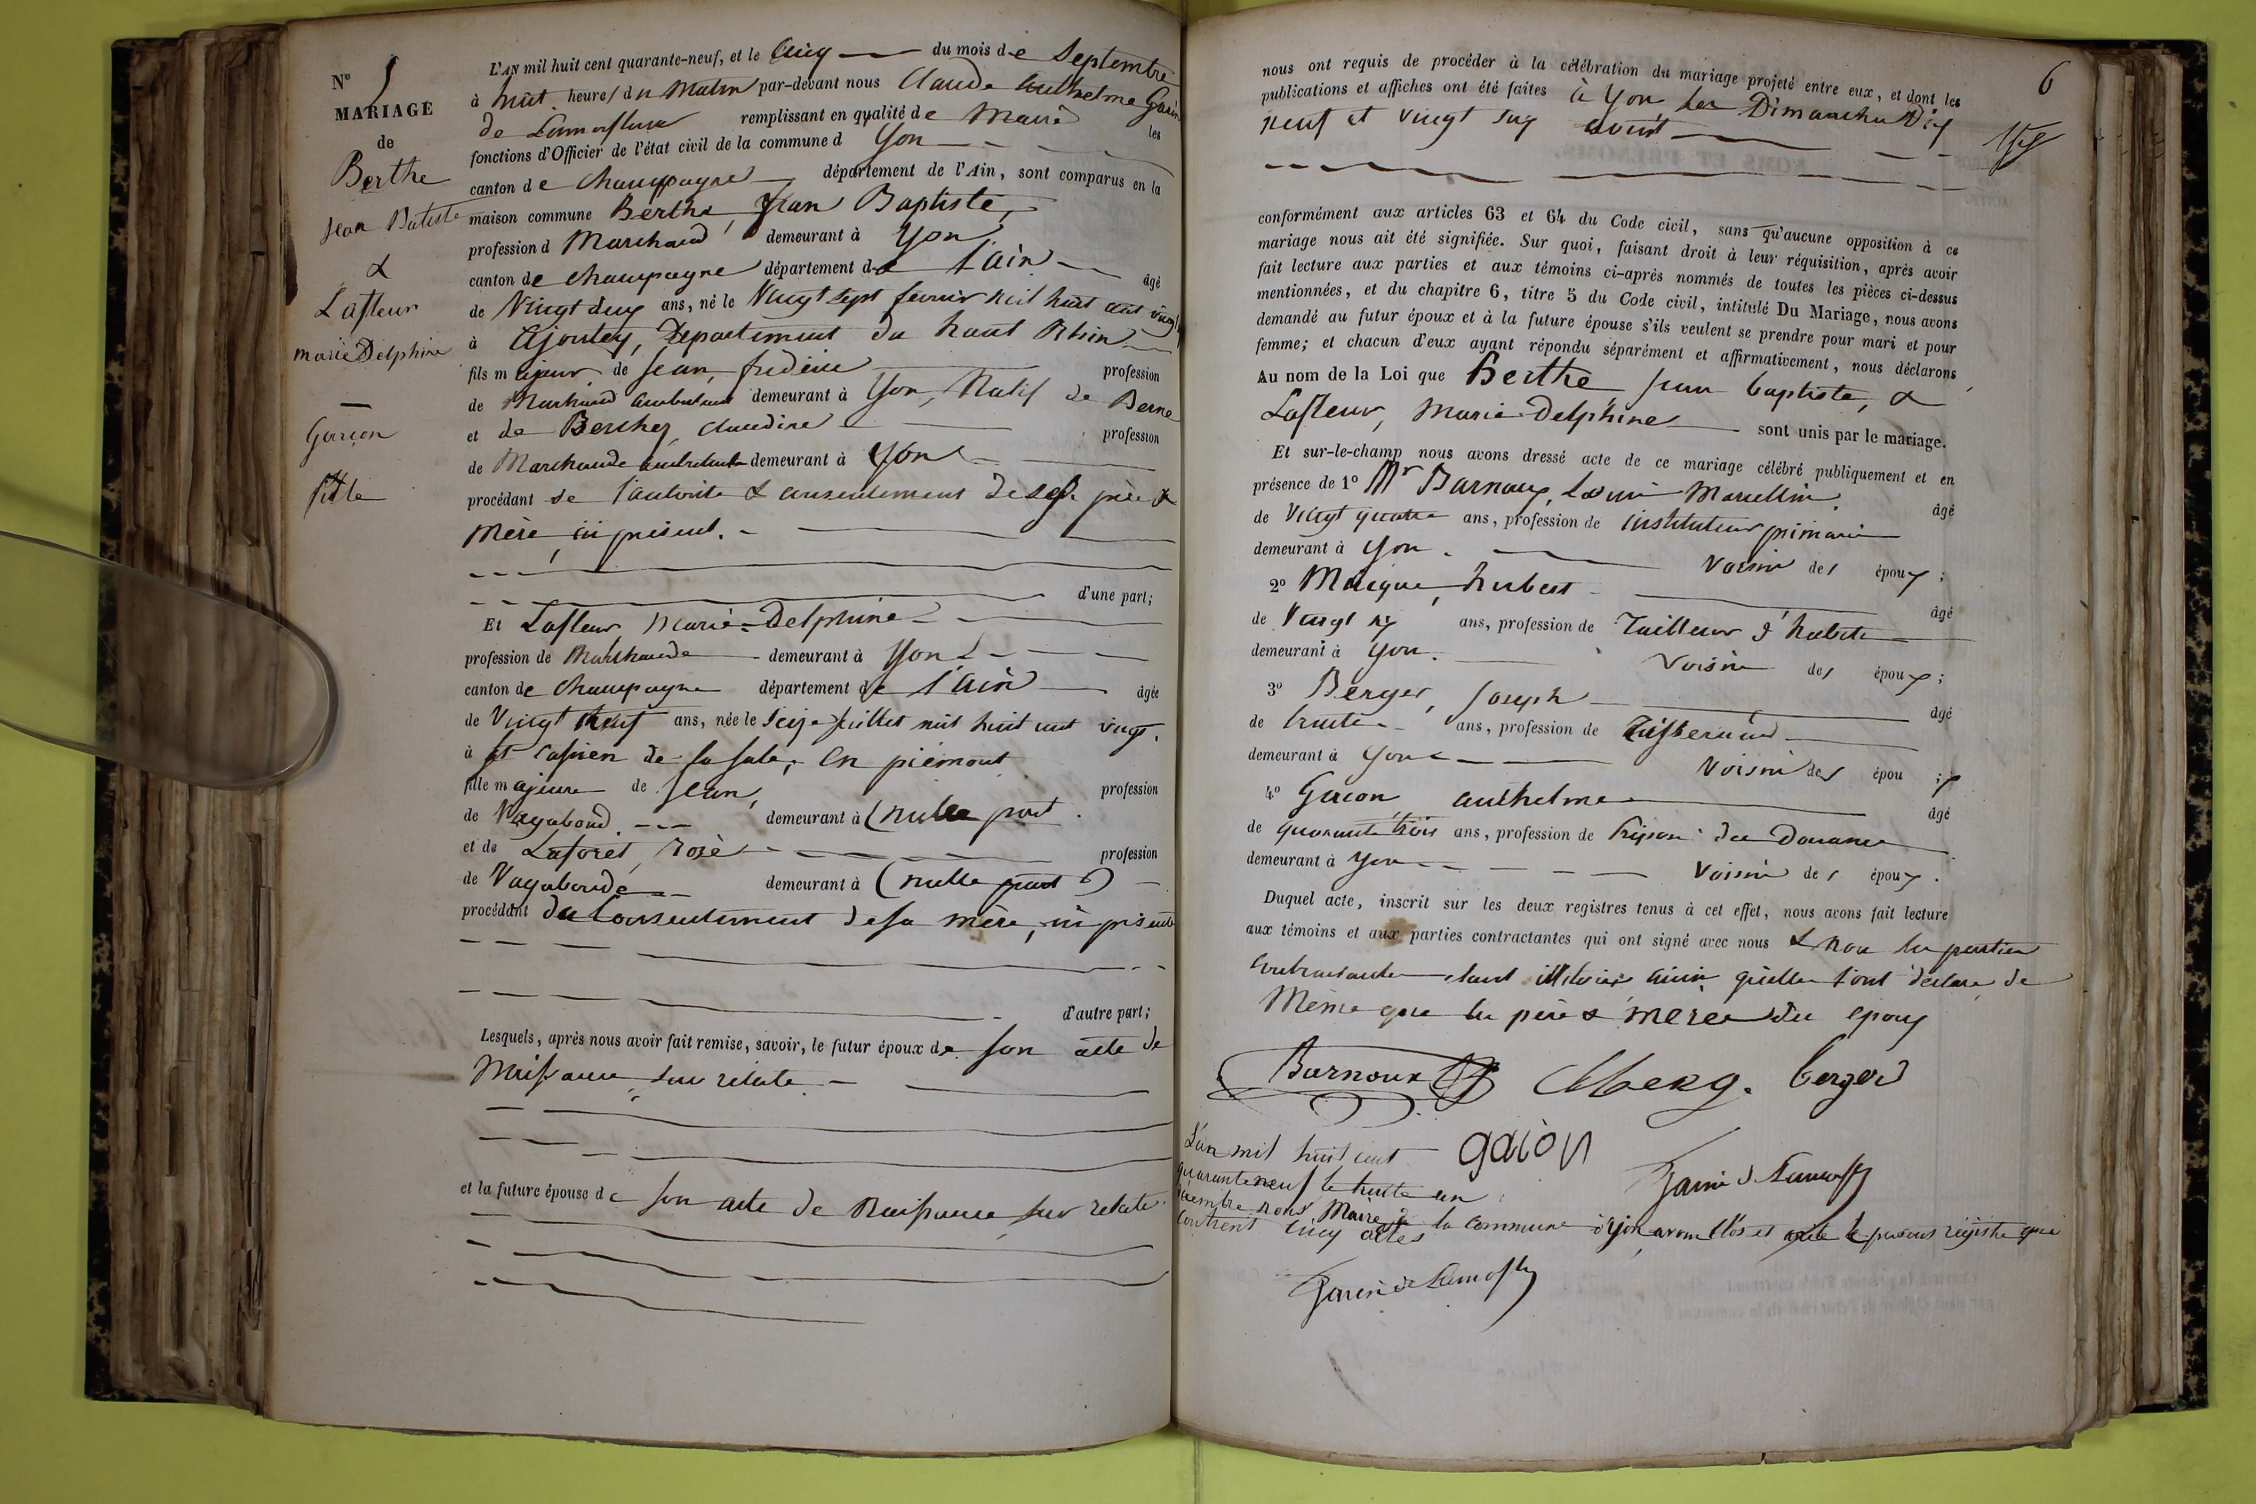 N° 5
MARIAGE
de
Berthe
Jean Batiste
&
Lafleur
marie Delphine
Garçon
fille
L'AN mil huit cent quarante-neuf, et le Cinq du mois de Septembre
à huit heures du Matin par-devant nous Claude Anthelme Garin
de Lamorflan remplissant en qualité de Maire les
fonctions d'Officier de l'état civil de la commune d Yon
canton de Champagne département de l'Ain, sont comparus en la
maison commune Berthe, Jean Baptiste,
profession d Marchand demeurant à Yon
canton de Champagne département de l'ain âgé
de Vingt deux ans, né le Vingt sept fevrier mil huit cent vingt
à Ajoutey, Departement du haut Rhin
fils majeur de Jean, frédéric profession
de Marchand ambulant demeurant à Yon, Natif de Berne
et de Berthez Claudine profession
de Marchande ambulante demeurant à Yon
procédant de l'autorité & consentement de ses père &
mère, ici présent.
d'une part;
Et Lafleur, Marie-Delphine
profession de Marchande demeurant à Yon
canton de Champagne département de l'Ain âgée
de Vingt neuf ans, née le Seize Juillet mil huit cent vingt.
à St Cassien de la Sale, en piémont
fille majeure de Jean, profession
de Vagabond demeurant à (nulle part.
et de Laforet, roze profession
de Vagabonde demeurant à (nulle part)
procédant du Consentement de sa mère, ici présente
d'autre part;
Lesquels, après nous avoir fait remise, savoir, le futur époux de son acte de
Naissance sus relaté
et la future épouse de son acte de Naissance sus relaté.
6
nous ont requis de procéder à la célébration du mariage projeté entre eux, et dont les
publications et affiches ont été faites à Yon les Dimanches Dix
neuf et vingt six août
conformément aux articles 63 et 64 du Code civil, sans qu'aucune opposition à ce
mariage nous ait été signifiée. Sur quoi, faisant droit à leur réquisition, après avoir
fait lecture aux parties et aux témoins ci-après nommés de toutes les pièces ci-dessus
mentionnées, et du chapitre 6, titre 5 du Code civil, intitulé Du Mariage, nous avons
demandé au futur époux et à la future épouse s'ils veulent se prendre pour mari et pour
femme; et chacun d'eux ayant répondu séparément et affirmativement, nous déclarons
Au nom de la Loi que Berthe Jean baptiste, &
Lafleur, Marie-Delphine sont unis par le mariage.
Et sur-le-champ nous avons dressé acte de ce mariage célébré publiquement et en
présence de 1° Mr Barnoux, Louis Marcellin âgé
de Vingt quatre ans, profession de instituteur primaire
demeurant à Yon. Voisin des époux;
2° Meigue, hubert âgé
de Vingt six ans, profession de Tailleur d'habits
demeurant à Yon. Voisin des époux;
3° Berger, Joseph âgé
de trente ans, profession de Tisserand
demeurant à Yon Voisin des époux;
4° Gaion, anthelme âgé
de quarante trois ans, profession de Préposé des Douanes
demeurant à Yon Voisin des époux.
Duquel acte, inscrit sur les deux registres tenus à cet effet, nous avons fait lecture
aux témoins et aux parties contractantes qui ont signé avec nous & non les parties
contractantes étant illitérées ainsi qu'elles l'ont déclaré de
Même que les pères & mères des époux
Barnoux berger
gaion
L'an mil huit cent
quarante neuf le trente un
décembre nous Maire de la commune d'Yon, avons clos et arrêté le présent registre qui
contient cinq actes